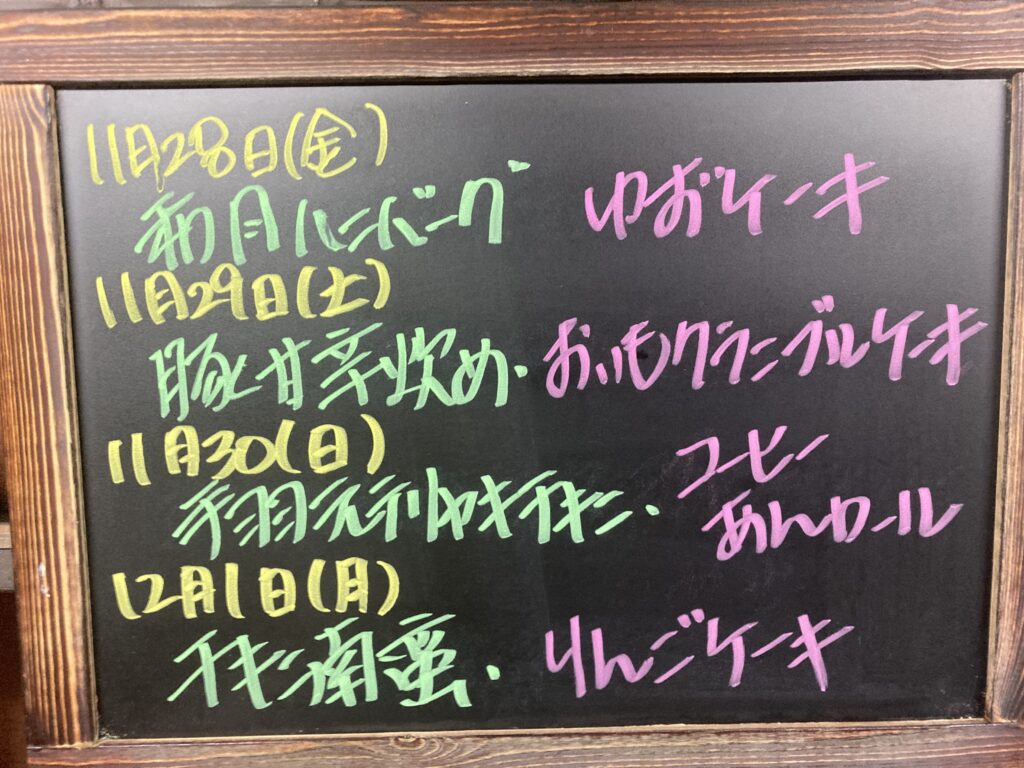 11月28日(金)
和風ハンバーグ ゆずケーキ
11月29日(土)
豚甘辛炒め・おいもクランブルケーキ
11月30(日)
手羽元テリヤキチキン・コーヒー
あんロール
12月1日(月)
チキン南蛮・りんごケーキ